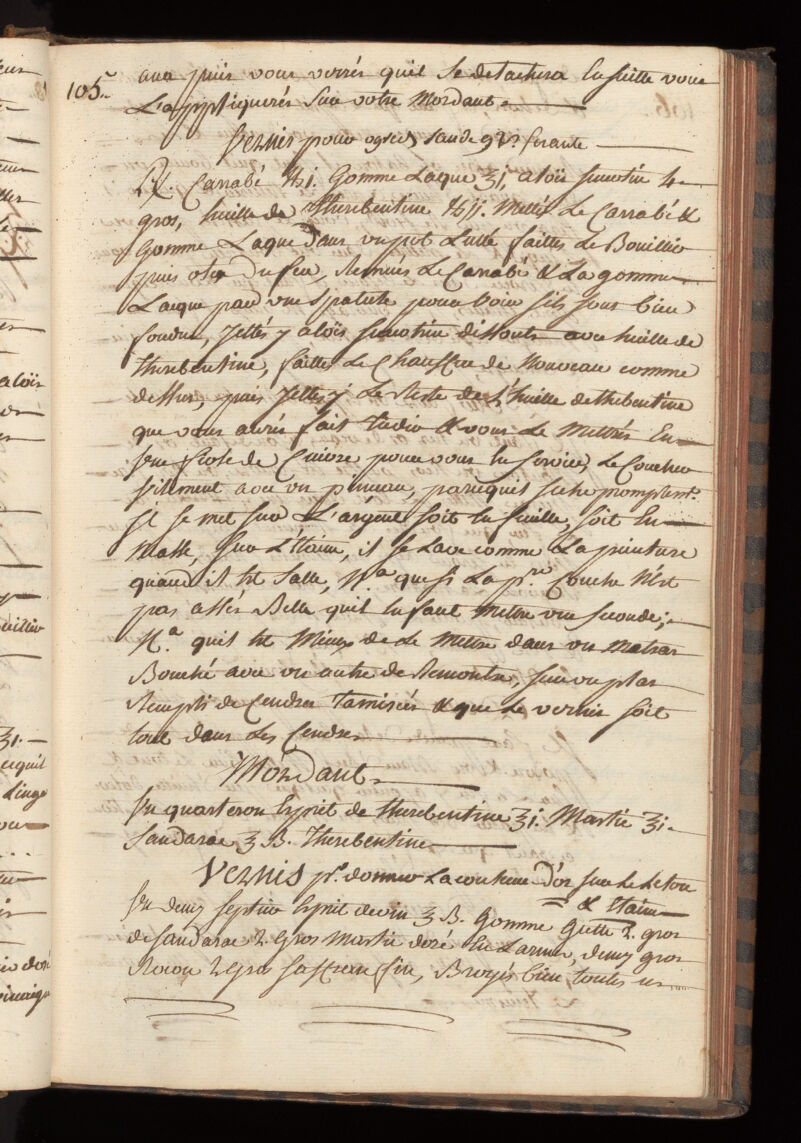 105.
aua puis vous verrés quil se detachera la feuille vous
L'appliquerés sur votre Mordant.
Vernis pour
Carrabé ℔j. Gomme Laque ʒj, aloïs sucotin 4
gros, huille de Therebentine ℔jj. Mettés Le Carrabé &
Gomme Laque dans un pot Lutté faittes Le Bouillir
puis oster du feu, Remués Le Carrabé & La gomme
Laque par une spatule pour voir sils sont bien
fondus, jettés y aloïs sucotin dissout avec huille de
therebentine, faitte Le Chauffer de Nouveau comme
dessus, puis jettes y Le Reste de L'huille de thebentine
que vous aurés fait tiedir & vous Le Mettrés En
une fiole de Cuivre pour vous en servir, Le Coucher
vitement avec un pinceau, parcequil seche promptemt.
Il se met sur L'argent soit En feuille, soit En
Masse, sur L'Etaim, il se Lave comme La peinture
quand il Est Salle, Na. que si La pre. Couche N'est
pas assés Belle quil En faut mettre une seconde;
Na. quil Est Mieux de Le Mettre dans un Matras
Bouché avec un autre de Rencontre, sur un plat
Rempli de Cendres tamisées & que Le vernis soit
tout dans Les Cendres
Mordant
Un quarteron Esprit de therebentine ʒj. Mastic ʒj.
Sandarac ʒ ß. Therebentine
Vernis pr. donner La couleur d'or sur Le Leton
& Etaim
Un demy septier Esprit de vin ʒ ß. Gomme Gutte 2 gros
de Sandarac 2 Gros Mastic En Larmes, demy gros
Rocou 2 Gros saffran fin, Broyés bien toutes